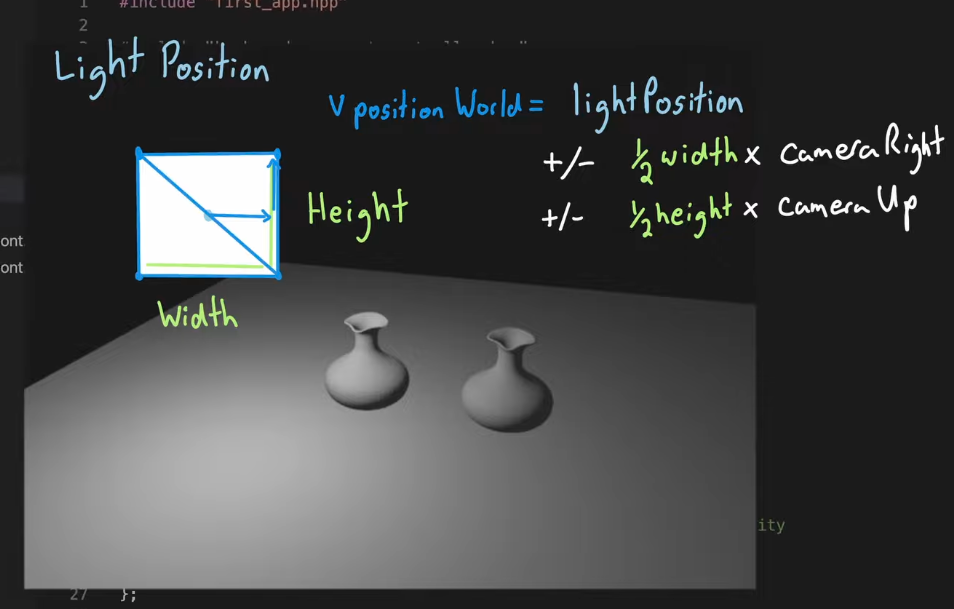 1 #include "first_app.hpp"
2
Light Position
v position World = lightPosition
+/- 1/2 width x cameraRight
+/- 1/2 height x cameraUp
Height
ont
ont
Width
ity
27 };